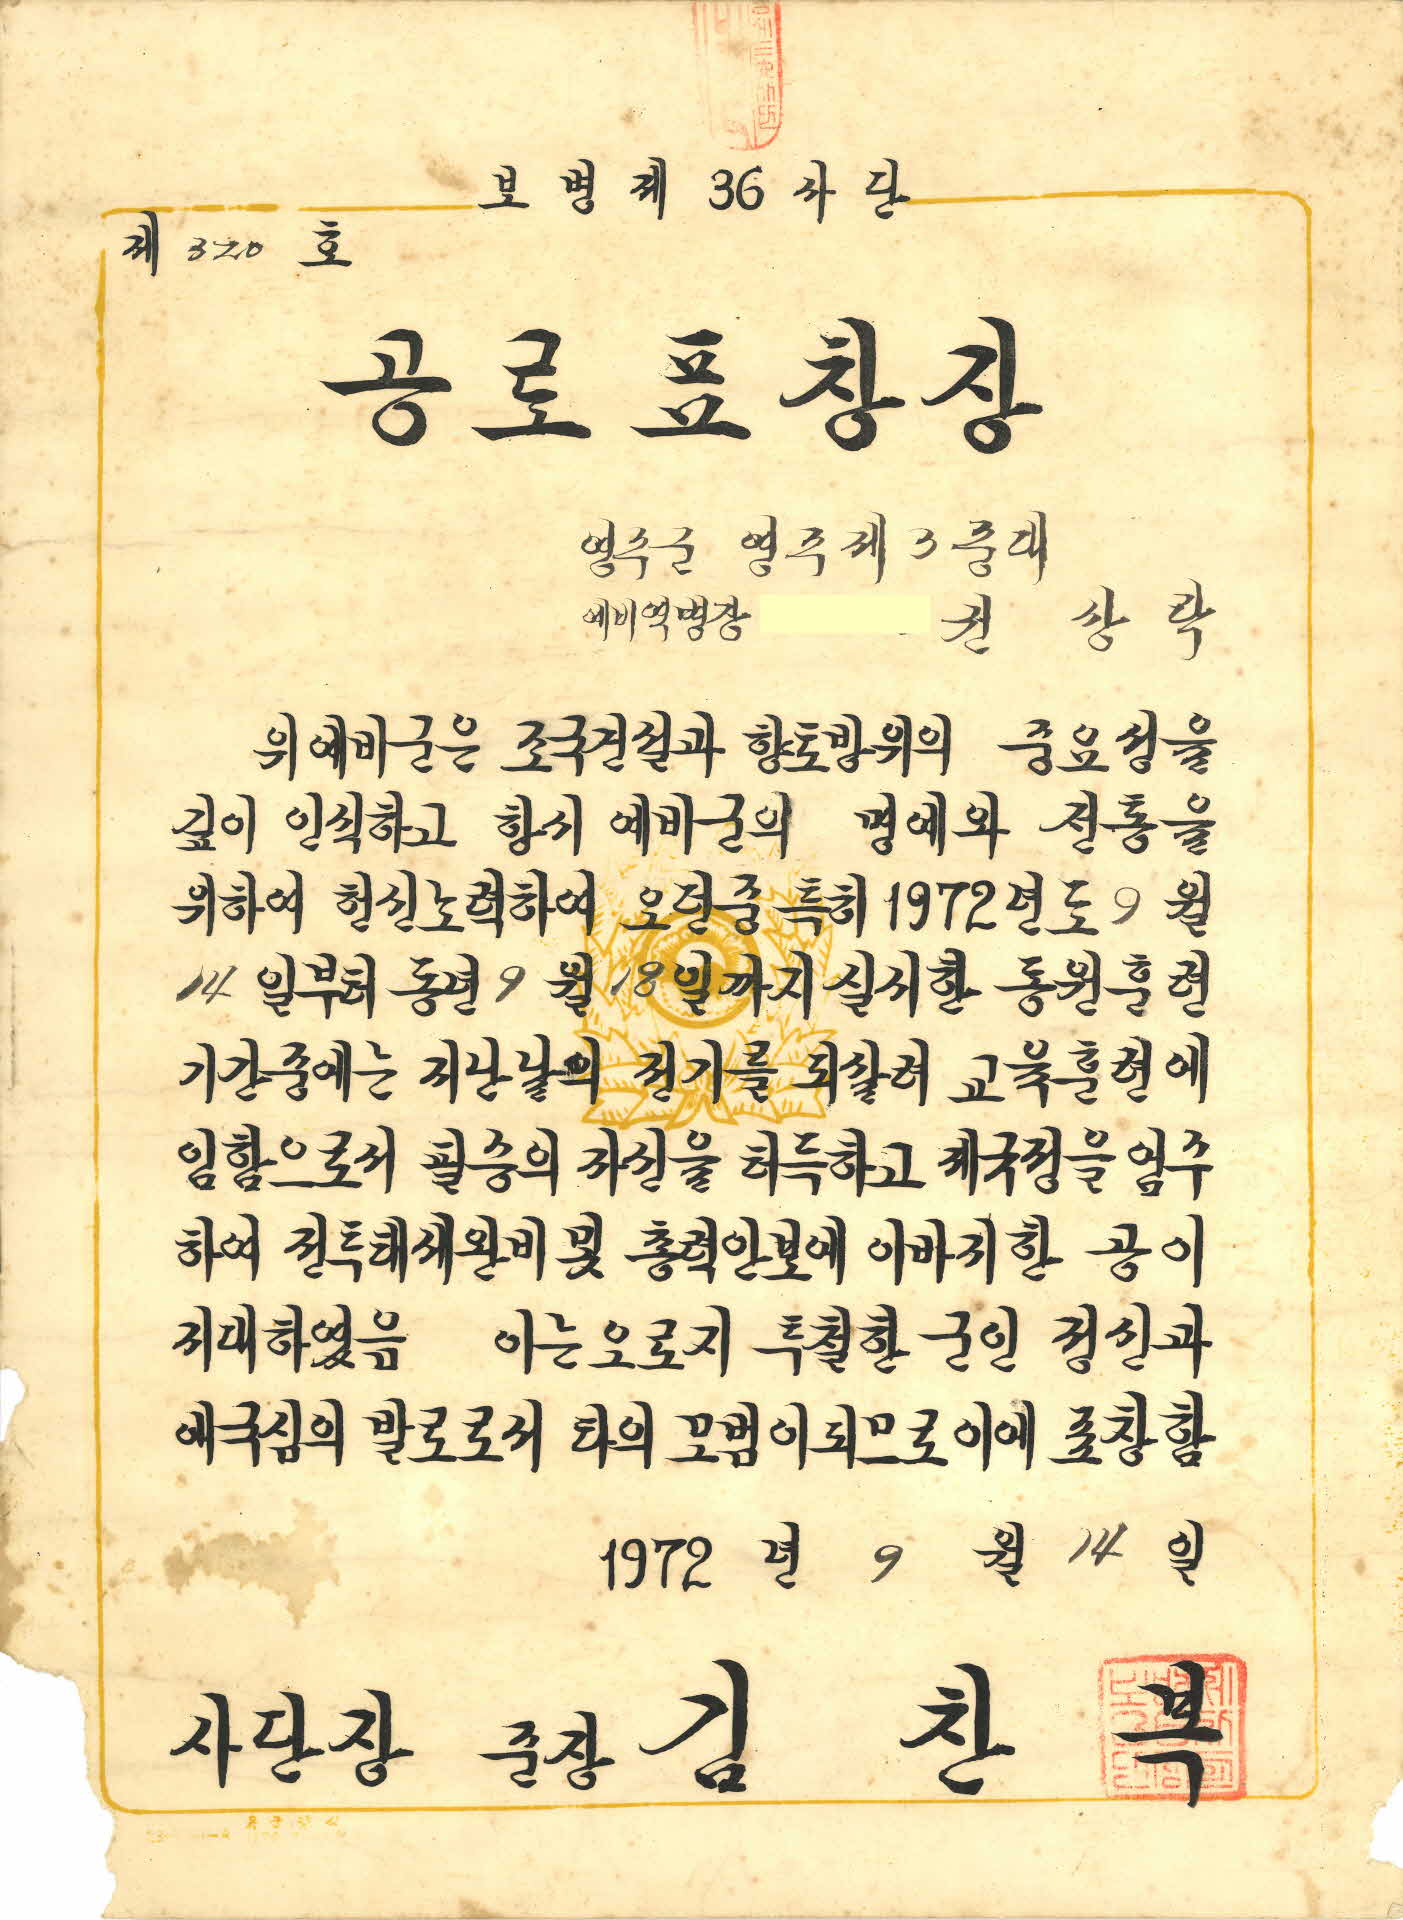 보병제 36 사단
제 320 호
공로표창장
영주군 영주제 3 중대
예비역병장 권 상 락
위예비군은 조국건설과 향토방위의 중요성을
깊이 인식하고 항시 예비군의 명예와 전통을
위하여 헌신노력하여 오던중 특히 1972년도 9 월
14 일부터 동년 9 월 18일까지 실시한 동원훈련
기간중에는 지난날의 전기를 되살려 교육훈련에
임함으로서 필승의 자신을 터득하고 제규정을 엄수
하여 전투태세완비 및 총력안보에 이바지한 공이
지대하였음 이는오로지 투철한 군인 정신과
애국심의 발로로서 타의 모범이되므로 이에 표창함
1972 년 9 월 14 일
사단장 준장 김 찬 복